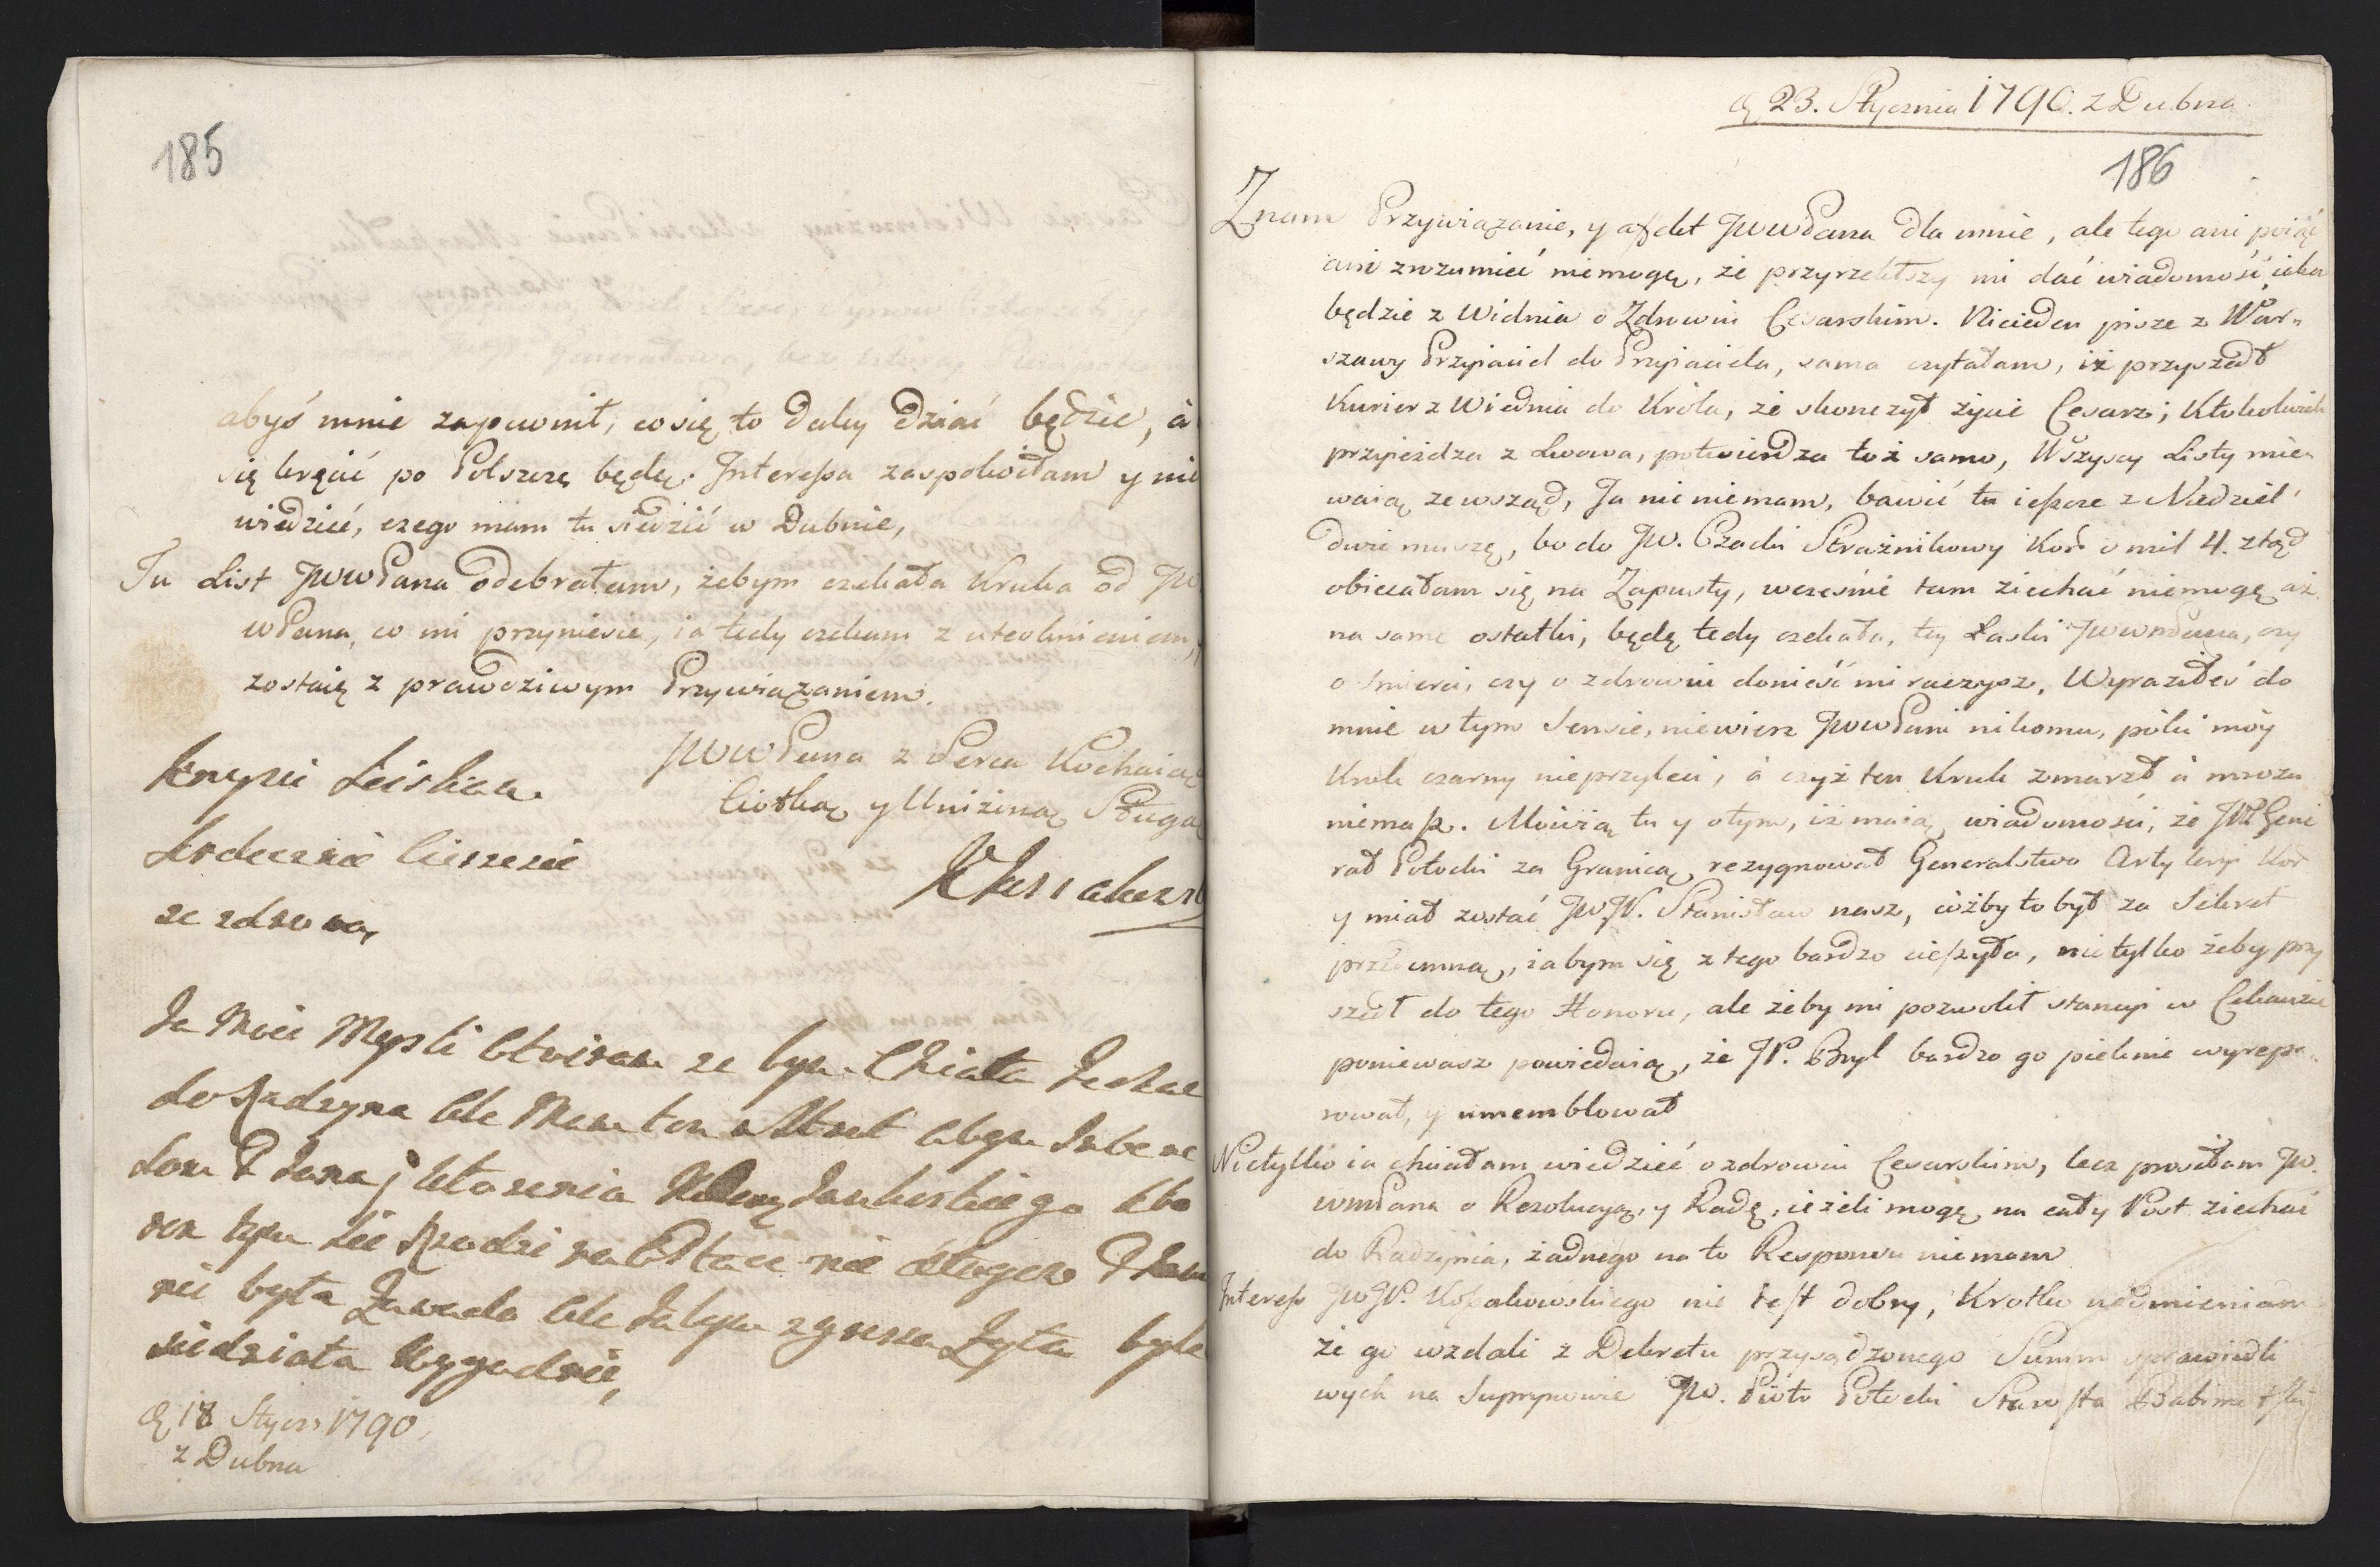 185
abyś mnie zapewnił, co się to daley dziać będzie, à
się kręcić po Polszcze będę. Interessa zaspokoiłam y nie
wiedzieć, czego mam tu siedzić w Dubnie,
Tu List JWWPana odebrałam, żebym czekała Kruka od JW
WPana, co mi przyniesie, ia tedy czekam z utesknieniem,
zostaię z prawdziwym Przywiązaniem.
JWWPana z Serca Kochaiącą
Ciotką y Uniżoną Sługą
Krysi
Serdecznie
ze zdrową
Ja Moie Mysli Otwiram ze bym Chciała Jechac
do Radzyna Ale Mam ten abym
dom P Jana
bym Sie
nie była Zawada Ale Ja bym Zyta byle
siedziała Wygodnie,
d. 18 Stycz: 1790.
z Dubna
d. 23. Stycznia 1790. z Dubna
186
Znam Przywiązanie, y affekt JWWPana dla mnie, ale tego ani poiąć
ani zrozumieć niemogę, że przyrzekłszy mi dać wiadomość, iaka
będzie z Widnia o Zdrowiu Cesarskim. Nieieden pisze z War=
szawy Przyiaciel do Przyiaciela, sama czytałam, iż przyszedł
Kurier z Wiednia do Króla, że skonczył życie Cesarz; Ktokolwiek
przyieżdza z Lwowa, potwierdza toż samo, Wszyscy Listy mie=
waią zewsząd, Ja nic niemam, bawić tu ieszcze z Niedziel
dwie muszę, bo do JW. Czacki Strażnikowy Kor: o mil 4. ztąd
obiecałam się na Zapusty, wcześnie tam ziechać niemogę aż
na same ostatki, będę tedy czekała, tey Łaski JWWMPana, czy
o smierci, czy o zdrowiu donieść mi raczysz, Wyraziłeś do
mnie w tym Sensie, niewierz JWWPani nikomu, póki móy
Kruk czarny nieprzyleci, à czyż ten Kruk zmarzł à mrozu
niemasz. Mówią tu y otym, iż maią wiadomości, że JW Gene
rał Potocki za Granicą rezygnował Generalstwo Artyleryi Kor
y miał zostać JWJP. Stanisław nasz, cóżby to był za Sekret
przedemną, iabym się z tego bardzo cieszyła, nietylko żeby przy
szedł do tego Honoru, ale żeby mi pozwolił stancyi w Cekauzie
poniewasz powiedaią, że JP. Bryl bardzo go pieknie wyrepe=
rował, y umemblował
Nietylko ia chciałam wiedzieć o zdrowiu Cesarskim, lecz prosiłam JW.
WMPana o Rezolucyą, y Radę, ieżeli mogę na cały Post ziechać
do Radzynia, żadnego na to Responsu niemam
Interess JWJP. Kossakowskiego nie iest dobry, Krotko nadmieniam
że go wzdali z Dekretu przysądzonego Summ sprawiedli
wych na Suprynowie JW. Piotr Potocki Starosta